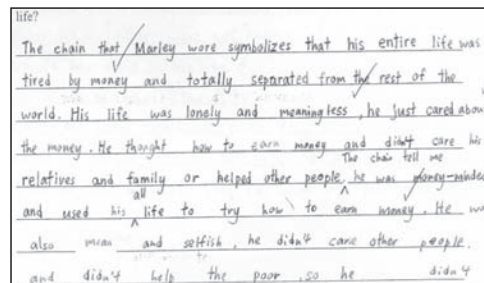 life?
The chain that Marley wore symbolizes that his entire life was
tired by money and totally separated from the rest of the
world. His life was lonely and meaningless, he just cared abou
the money. He thought how to earn money and didn't care his
The chain tell me
relatives and family or helped other people. he was money-minded
all
and used his life to try how to earn money. He wa
also mean and selfish, he didn't care other people.
and didn't help the poor, so he didn't